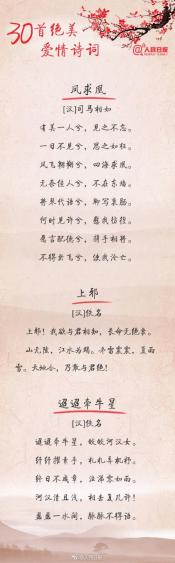 30首绝美
爱情诗词
@人民日报
凤求凰
[汉]司马相如
有美一人兮，见之不忘。
一日不见兮，思之如狂。
凤飞翱翔兮，四海求凰。
无奈佳人兮，不在东墙。
将琴代语兮，聊写衷肠。
何时见许兮，慰我彷徨。
愿言配德兮，携手相将。
不得於飞兮，使我沦亡。
上邪
[汉]佚名
上邪！我欲与君相知，长命无绝衰。
山无陵，江水为竭。冬雷震震，夏雨
雪。天地合，乃敢与君绝！
迢迢牵牛星
[汉]佚名
迢迢牵牛星，皎皎河汉女。
纤纤擢素手，札札弄机杼。
终日不成章，泣涕零如雨。
河汉清且浅，相去复几许！
盈盈一水间，脉脉不得语。
@人民日报